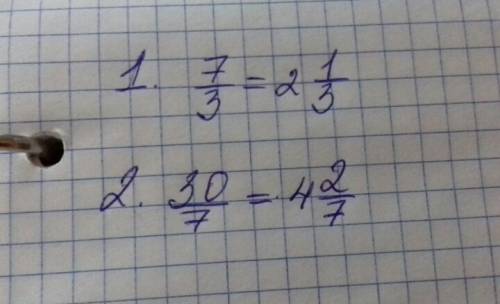 1. 7/3 = 2 1/3
2. 30/7 = 4 2/7